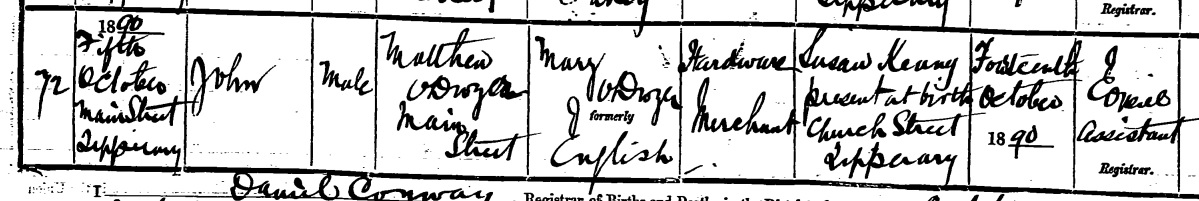 Tipperary
Registrar.
72
1890
Fifth
October
Main Street
Tipperary
John
Male
Matthew
O Dwyer
Main
Street
Mary
O Dwyer
formerly
English
Hardware
Merchant
Susan Keany
present at birth
Church Street
Tipperary
Fourteenth
October
1890
J
Assistant
Registrar.
I
Daniel Conway
Registrar of Births and Deaths in the District of